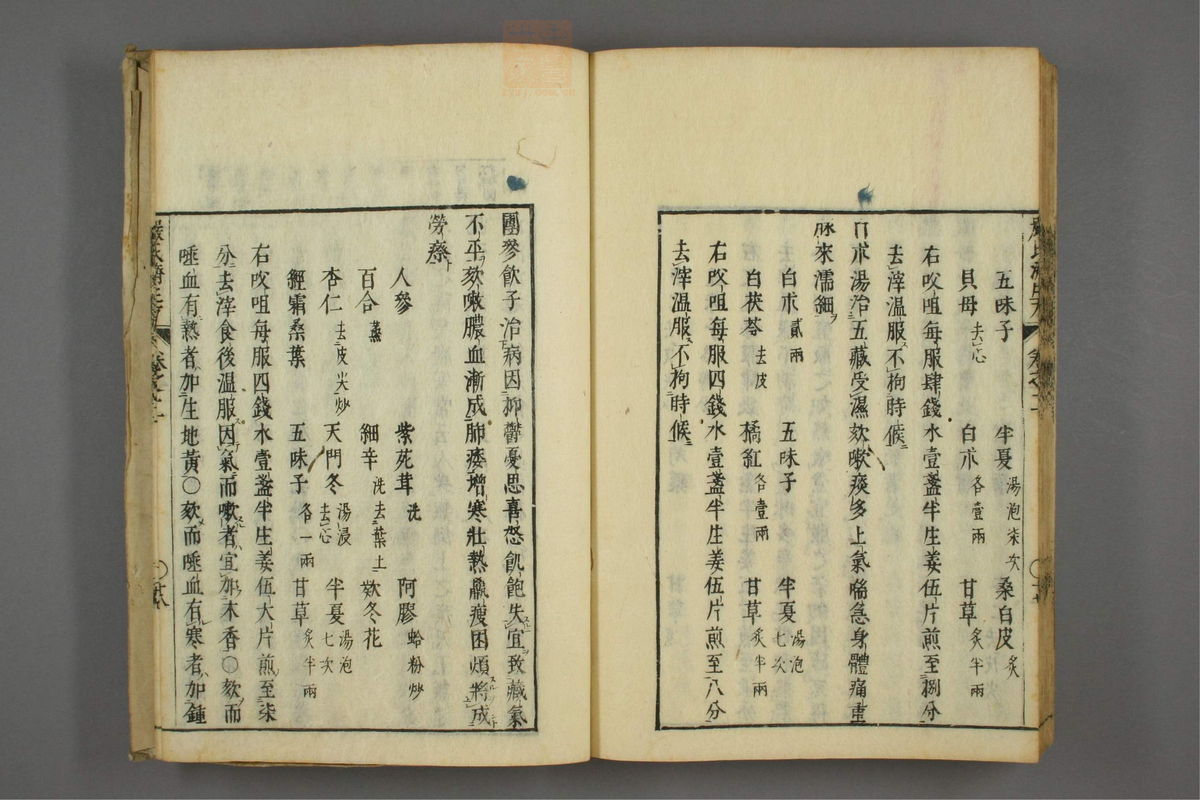 五味子 半夏湯泡柒次 桑白皮炙
貝母去心 白朮各壹兩 甘草炙半兩
右㕮咀每服肆錢水壹盞半生姜伍片煎至捌分
去滓温服不拘時候
白朮湯治五藏受濕欬嗽痰多上氣喘急身體痛重
脉來濡細
白朮貳兩 五味子 半夏湯泡七次
白茯苓去皮 橘紅各壹兩 甘草炙半兩
右㕮咀每服四錢水壹盞半生姜伍片煎至八分
去滓温服不拘時候
團參飲子治病因抑鬱憂思喜怒飢飽失宜致藏氣
不平欬嗽膿血漸成肺痿增寒壯熱羸瘦困煩將成
勞瘵
人參 紫菀茸洗 阿膠蛤粉炒
百合蒸 細辛洗去葉土 欵冬花
杏仁去皮尖炒 天門冬湯浸去心 半夏湯泡七次
經霜桑葉 五味子各一兩 甘草炙半兩
右㕮咀每服四錢水壹盞半生姜伍大片煎至柒
分去滓食後温服因氣而嗽者宜加木香〇欬而
唾血有熱者加生地黃〇欬而唾血有寒者加鍾